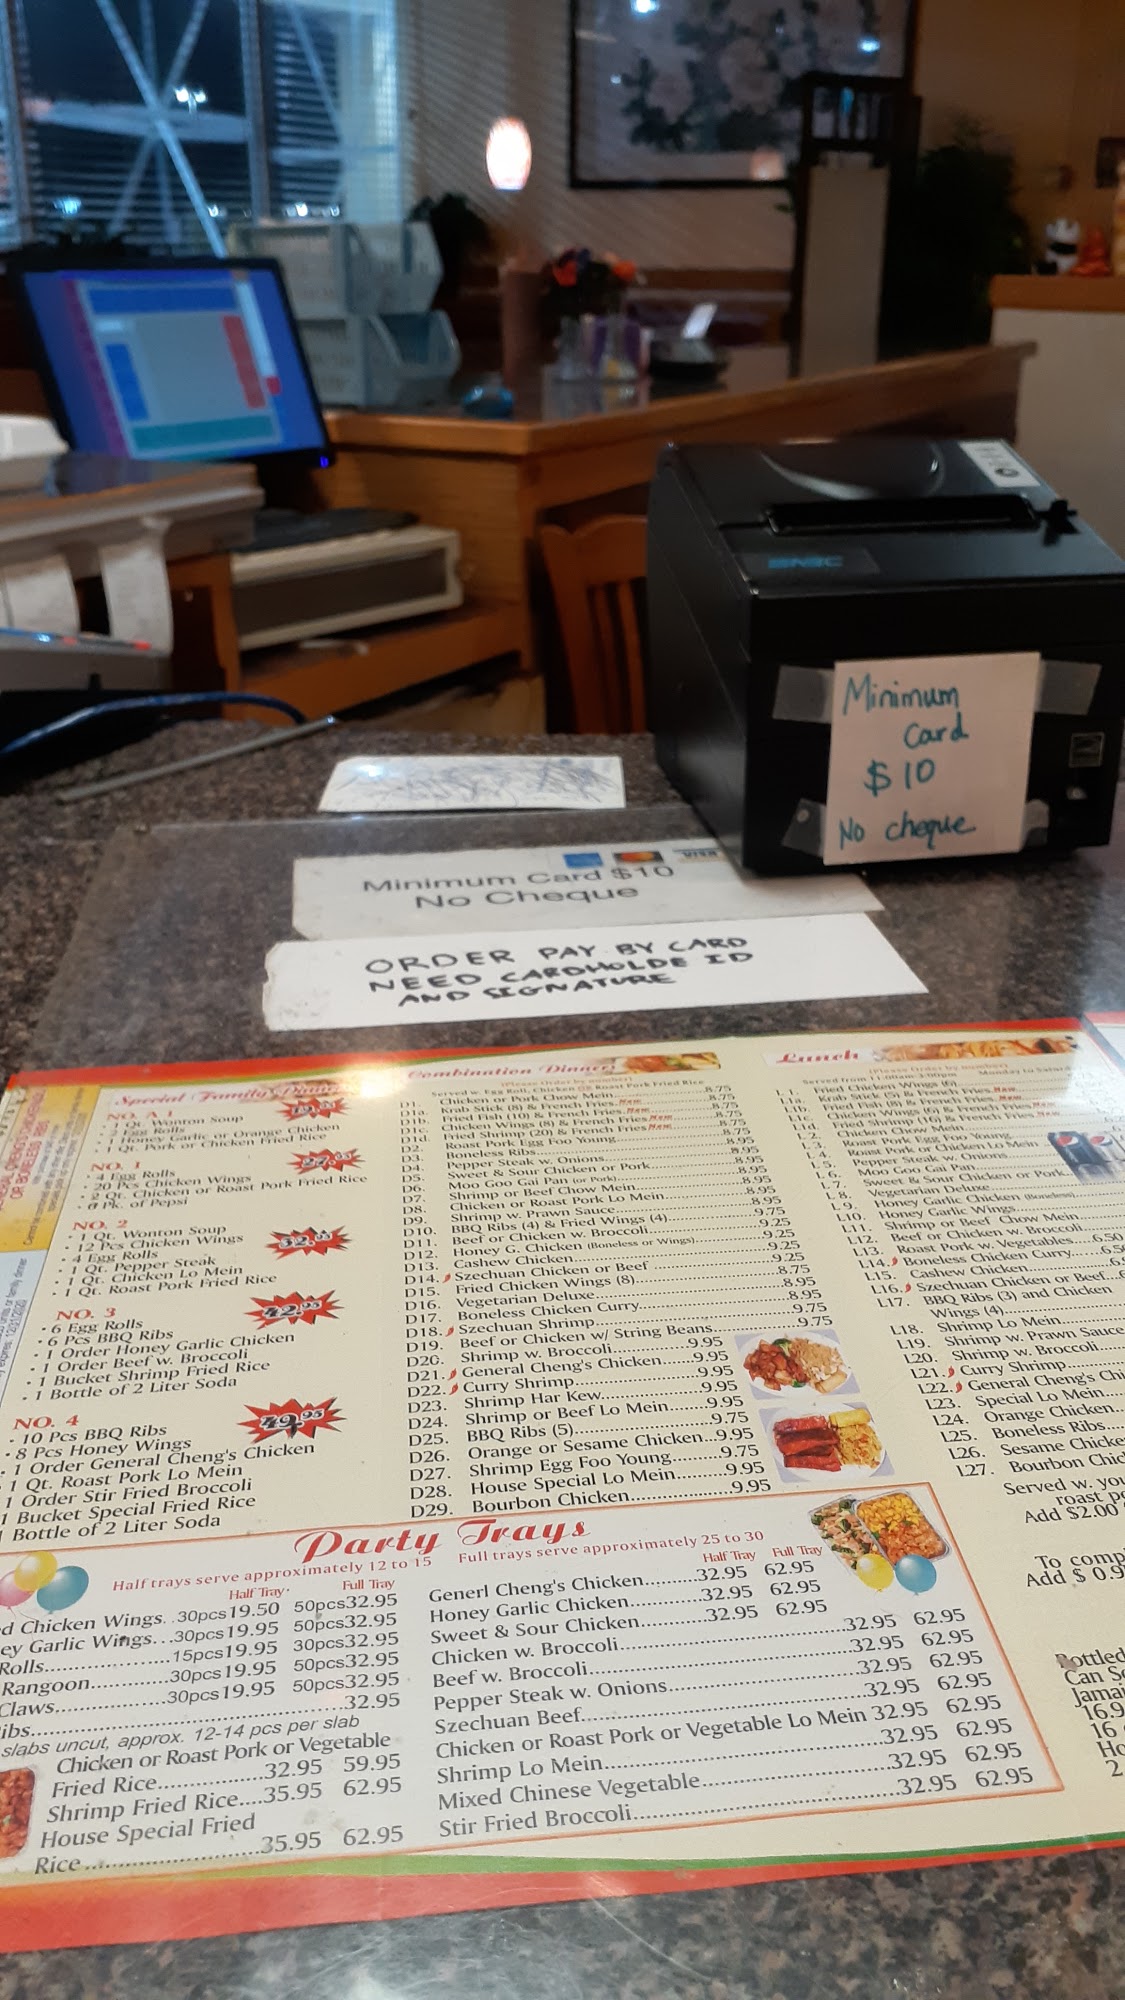 Minimum
Card
$10
No cheque
VISA
Minimum Card $10
No Cheque
ORDER PAY BY CARD
NEED CARDHOLDE ID
AND SIGNATURE
Special Family Dinner
NO. A 1
· 1 Qt. Wonton Soup
· 2 Egg Rolls
· 1 Honey Garlic or Orange Chicken
· 1 Qt. Pork or Chicken Fried Rice
NO. 1
· 4 Egg Rolls
· 20 Pcs Chicken Wings
· 2 Qt. Chicken or Roast Pork Fried Rice
· 6 Pk. of Pepsi
NO. 2
32.95
· 1 Qt. Wonton Soup
· 12 Pcs Chicken Wings
· 4 Egg Rolls
· 1 Qt. Pepper Steak
· 1 Qt. Chicken Lo Mein
· 1 Qt. Roast Pork Fried Rice
NO. 3
42.95
· 6 Egg Rolls
· 6 Pcs BBQ Ribs
· 1 Order Honey Garlic Chicken
· 1 Order Beef w. Broccoli
· 1 Bucket Shrimp Fried Rice
· 1 Bottle of 2 Liter Soda
NO. 4
49.95
· 10 Pcs BBQ Ribs
· 8 Pcs Honey Wings
· 1 Order General Cheng's Chicken
1 Qt. Roast Pork Lo Mein
1 Order Stir Fried Broccoli
1 Bucket Special Fried Rice
1 Bottle of 2 Liter Soda
Combination Dinners
(Please Order by number)
Served w. Egg Roll & Chicken or Roast Pork Fried Rice
D1. Chicken or Pork Chow Mein
D1a. Krab Stick (8) & French Fries New
D1b. Fried Fish (10) & French Fries New
D1c. Chicken Wings (8) & French Fries New
D1d. Fried Shrimp (20) & French Fries New
D2. Roast Pork Egg Foo Young
D3. Boneless Ribs
D4. Pepper Steak w. Onions
D5. Sweet & Sour Chicken or Pork
D6. Moo Goo Gai Pan (or Pork)
D7. Shrimp or Beef Chow Mein
D8. Chicken or Roast Pork Lo Mein
D9. Shrimp w. Prawn Sauce
D10. BBQ Ribs (4) & Fried Wings (4)
D11. Beef or Chicken w. Broccoli
D12. Honey G. Chicken (Boneless or Wings)
D13. Cashew Chicken
D14. Szechuan Chicken or Beef
D15. Fried Chicken Wings (8)
D16. Vegetarian Deluxe
D17. Boneless Chicken Curry
D18. Szechuan Shrimp
D19. Beef or Chicken w/ String Beans
D20. Shrimp w. Broccoli 9.95
D21. General Cheng's Chicken 9.95
D22. Curry Shrimp 9.95
D23. Shrimp Har Kew 9.95
D24. Shrimp or Beef Lo Mein 9.95
D25. BBQ Ribs (5) 9.75
D26. Orange or Sesame Chicken 9.95
D27. Shrimp Egg Foo Young 9.75
D28. House Special Lo Mein 9.95
D29. Bourbon Chicken 9.95
Lunch
(Please Order by number)
Served from 11:00am-3:00pm Monday to Satur
L1. Fried Chicken Wings (6)
L1a. Krab Stick (5) & French Fries New
L1b. Fried Fish (8) & French Fries New
L1c. Chicken Wings (6) & French Fries New
L1d. Fried Shrimp (16) & French Fries New
L2. Chicken Chow Mein
L3. Roast Pork Egg Foo Young
L4. Roast Pork or Chicken Lo Mein
L5. Pepper Steak w. Onions
L6. Moo Goo Gai Pan
L7. Sweet & Sour Chicken or Pork
L8. Vegetarian Deluxe
L9. Honey Garlic Chicken (Boneless)
L10. Honey Garlic Wings
L11. Shrimp or Beef Chow Mein
L12. Beef or Chicken w. Broccoli
L13. Roast Pork w. Vegetables 6.50
L14. Boneless Chicken Curry
L15. Cashew Chicken
L16. Szechuan Chicken or Beef
L17. BBQ Ribs (3) and Chicken
Wings (4)
L18. Shrimp Lo Mein
L19. Shrimp w. Prawn Sauce
L20. Shrimp w. Broccoli
L21. Curry Shrimp
L22. General Cheng's Chi
L23. Special Lo Mein
L24. Orange Chicken
L25. Boneless Ribs
L26. Sesame Chicke
L27. Bourbon Chic
Served w. you
roast po
Add $2.00
To comp
Add $ 0.9
Bottled
Can So
Jamai
16.9
16
Ho
2
Party Trays
Half trays serve approximately 12 to 15 Full trays serve approximately 25 to 30
Half Tray Full Tray
d Chicken Wings 30pcs 19.50 50pcs 32.95
ey Garlic Wings 30pcs 19.95 50pcs 32.95
Rolls 15pcs 19.95 30pcs 32.95
Rangoon 30pcs 19.95 50pcs 32.95
Claws 30pcs 19.95 50pcs 32.95
ibs 32.95
slabs uncut, approx. 12-14 pcs per slab
Chicken or Roast Pork or Vegetable
Fried Rice 32.95 59.95
Shrimp Fried Rice 35.95 62.95
House Special Fried
Rice 35.95 62.95
Half Tray Full Tray
Generl Cheng's Chicken 32.95 62.95
Honey Garlic Chicken 32.95 62.95
Sweet & Sour Chicken 32.95 62.95
Chicken w. Broccoli 32.95 62.95
Beef w. Broccoli 32.95 62.95
Pepper Steak w. Onions 32.95 62.95
Szechuan Beef 32.95 62.95
Chicken or Roast Pork or Vegetable Lo Mein 32.95 62.95
Shrimp Lo Mein 32.95 62.95
Mixed Chinese Vegetable 32.95 62.95
Stir Fried Broccoli 32.95 62.95